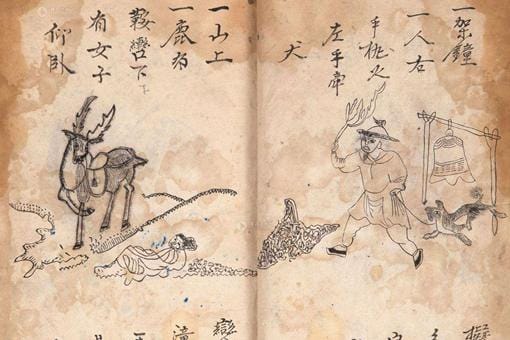 一架鐘
一人右
手桃火
左手牽
犬
一山上
一鹿有
鞍轡下
有女子
仰卧